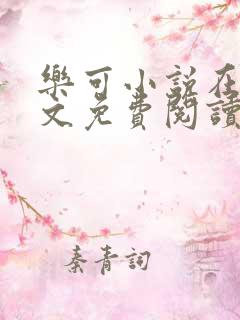 樂可小說在
文免費閱讀
秦青詞